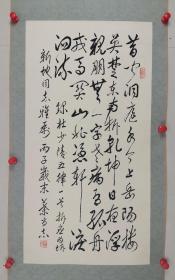 昔闻洞庭水今上岳陽樓
吴楚東南坼乾坤日夜浮
親朋無一字老病有孤舟
戎馬関山北憑軒涕
泗流 録杜少陵五律一首
同志雅属 丙子歲末